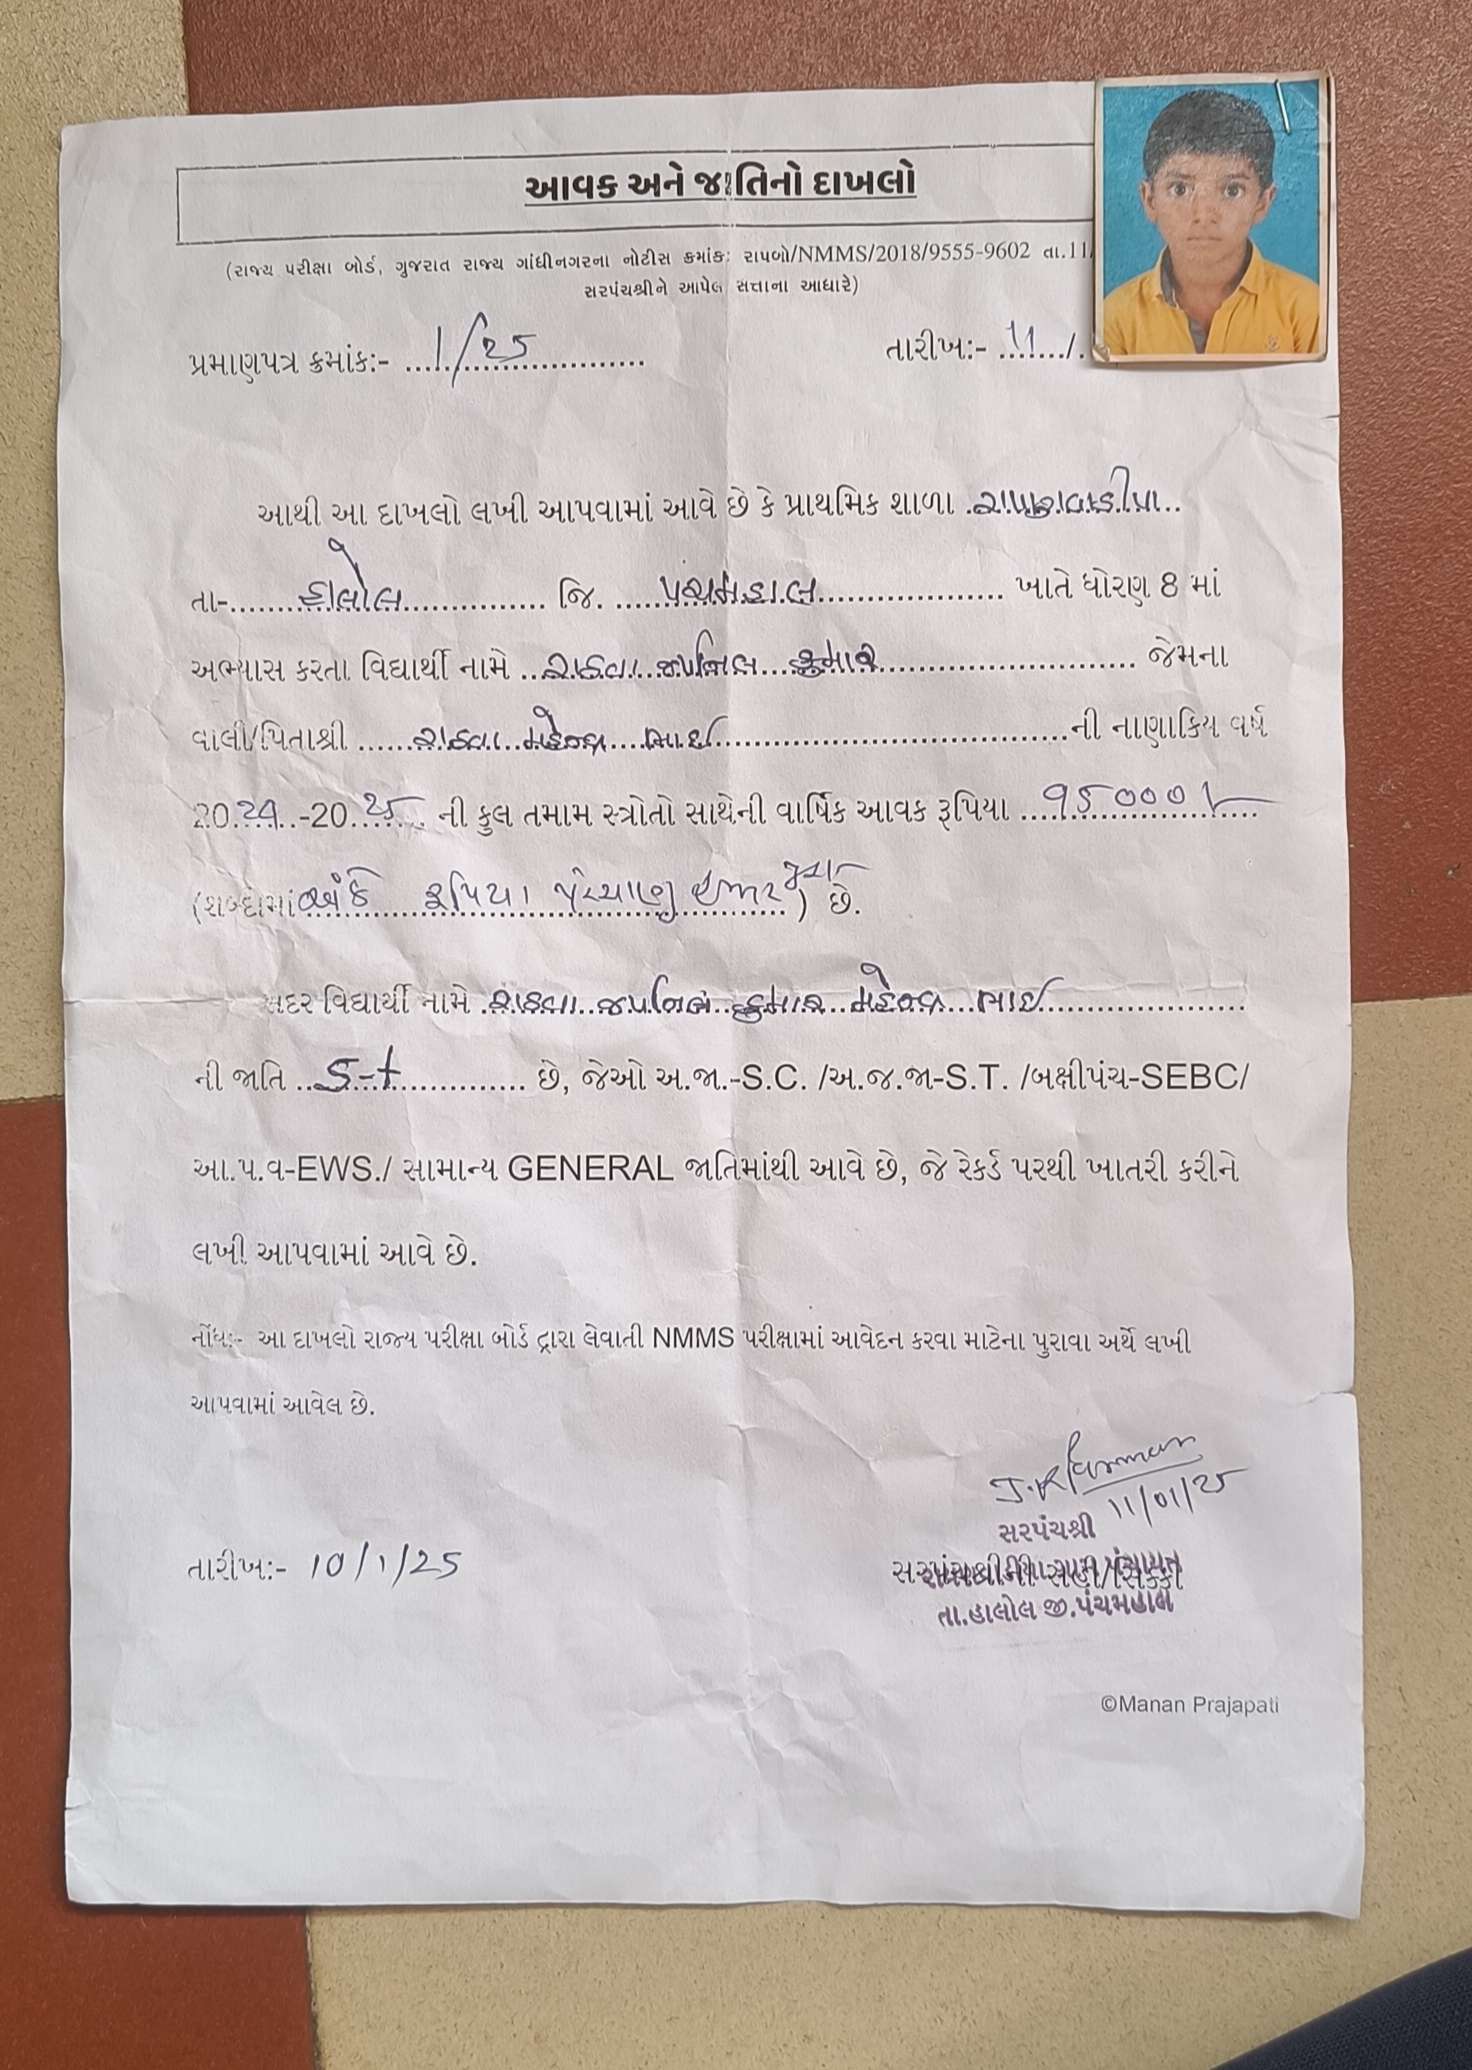 આવક અને જાતિનો દાખલો
(રાજ્ય પરીક્ષા બોર્ડ, ગુજરાત રાજ્ય ગાંધીનગરના નોટીસ ક્રમાંક: રાપબો/NMMS/2018/9555-9602 તા.11/
સરપંચશ્રીને આપેલ સત્તાના આધારે)
પ્રમાણપત્ર ક્રમાંક:- 1/25 તારીખ:- 11/
આથી આ દાખલો લખી આપવામાં આવે છે કે પ્રાથમિક શાળા
તા-હાલોલ જિ. પંચમહાલ ખાતે ધોરણ 8 માં
અભ્યાસ કરતા વિદ્યાર્થી નામે રાઠવા જપનિલ કુમાર જેમના
વાલી/પિતાશ્રી રાઠવા મહેન્દ્ર ભાઈ ની નાણાકિય વર્ષ
2024-2025 ની કુલ તમામ સ્ત્રોતો સાથેની વાર્ષિક આવક રૂપિયા 95000/-
(શબ્દોમાં અંકે રૂપિયા પંચાણુ હજાર પુરા) છે.
સદર વિદ્યાર્થી નામે રાઠવા જપનિલ કુમાર મહેન્દ્ર ભાઈ
ની જાતિ S-t છે, જેઓ અ.જા.-S.C. /અ.જ.જા-S.T. /બક્ષીપંચ-SEBC/
આ.પ.વ-EWS./ સામાન્ય GENERAL જાતિમાંથી આવે છે, જે રેકર્ડ પરથી ખાતરી કરીને
લખી આપવામાં આવે છે.
નોંધ:- આ દાખલો રાજ્ય પરીક્ષા બોર્ડ દ્વારા લેવાતી NMMS પરીક્ષામાં આવેદન કરવા માટેના પુરાવા અર્થે લખી
આપવામાં આવેલ છે.
11/01/25
સરપંચશ્રી
તારીખ:- 10/1/25
તા.હાલોલ જી.પંચમહાલ
©Manan Prajapati